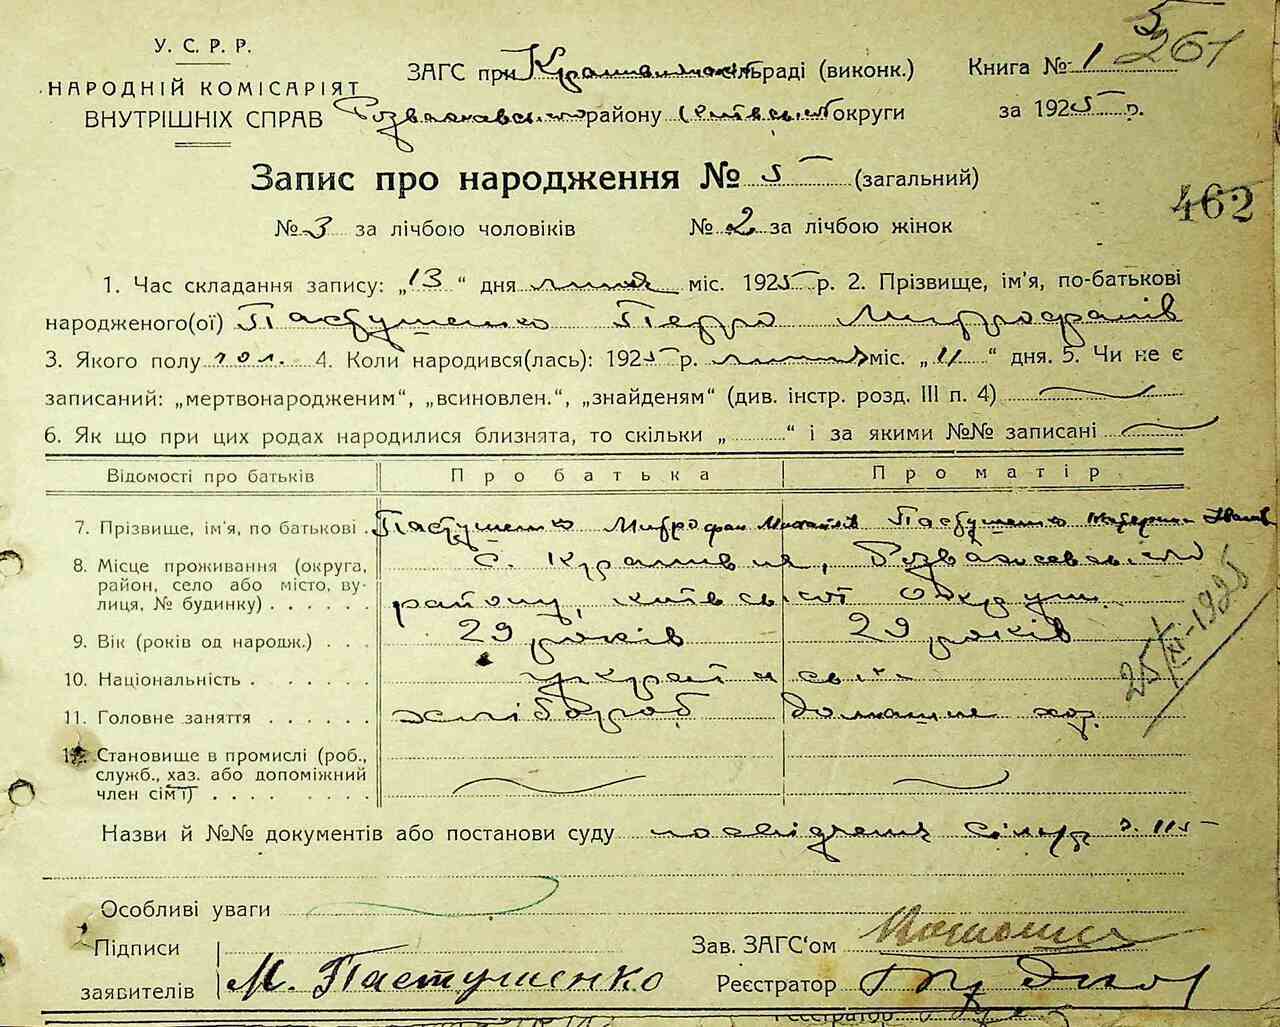 У. С. Р. Р.
НАРОДНІЙ КОМІСАРІЯТ
ВНУТРІШНІХ СПРАВ
ЗАГС при сільраді (виконк.) Книга № 1
5
261
Розважівського району Київської округи за 1925 р.
Запис про народження № 5 (загальний)
462
№ 3 за лічбою чоловіків № 2 за лічбою жінок
1. Час складання запису: „13“ дня липня міс. 1925 р. 2. Прізвище, ім'я, по-батькові
народженого(ої) Пастушенко Петро Митрофанів
3. Якого полу чол. 4. Коли народився(лась): 1925 р. міс. „11“ дня. 5. Чи не є
записаний: „мертвонародженим“, „всиновлен.“, „знайденям“ (див. інстр. розд. III п. 4)
6. Як що при цих родах народилися близнята, то скільки „ “ і за якими №№ записані
Відомості про батьків Про батька Про матір
7. Прізвище, ім'я, по батькові . Пастушенко Митрофан Пастушенко Катерина Іванів
8. Місце проживання (округа, с. Крапивня, Розважівського
район, село або місто, ву-
лиця, № будинку) . . . . . . району, Київської округи.
9. Вік (років од народж.) . . . 29 років 29 років
10. Національність . . . . . . . українські
11. Головне заняття . . . . . . хлібороб домашне хоз.
25/XI-1925
12. Становище в промислі (роб.,
служб., хаз. або допоміжний
член сім'ї) . . . . . . . .
Назви й №№ документів або постанови суду посвідченя сільр. з. 115
Особливі уваги
Підписи Зав. ЗАГС'ом
заявителів М. Пастушенко Реєстратор
Реєстратор